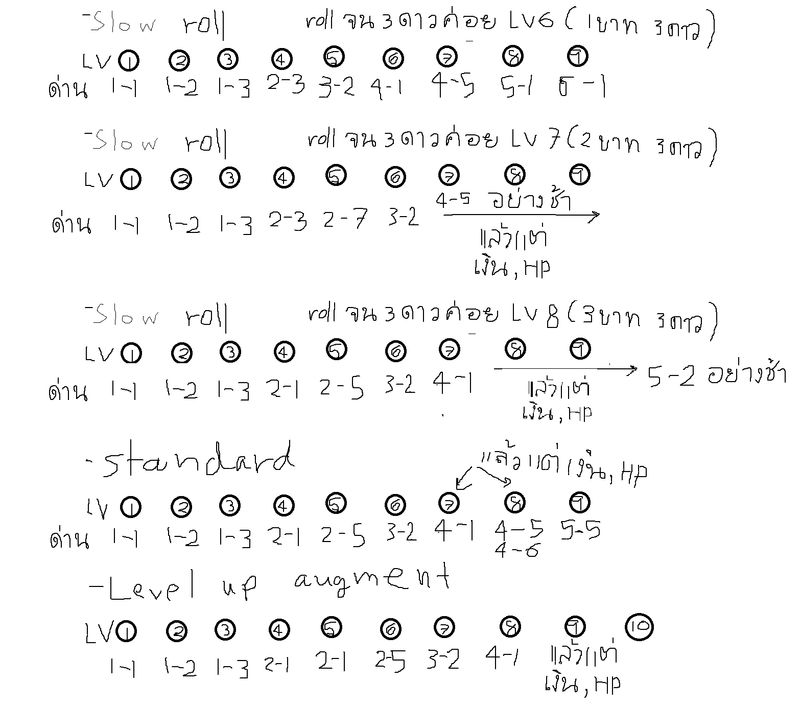 -Slow roll roll จน 3 ดาวค่อย LV6 (1 บาท 3 ดาว)
LV 1 2 3 4 5 6 7 8 9
ด่าน 1-1 1-2 1-3 2-3 3-2 4-1 4-5 5-1 6-1
-Slow roll roll จน 3 ดาวค่อย LV 7 (2 บาท 3 ดาว)
LV 1 2 3 4 5 6 7 8 9
4-5 อย่างช้า
ด่าน 1-1 1-2 1-3 2-3 2-7 3-2
แล้วแต่
เงิน, HP
-Slow roll roll จน 3 ดาวค่อย LV 8 (3 บาท 3 ดาว)
LV 1 2 3 4 5 6 7 8 9
ด่าน 1-1 1-2 1-3 2-1 2-5 3-2 4-1 แล้วแต่ 5-2 อย่างช้า
เงิน, HP
-Standard แล้วแต่เงิน, HP
LV 1 2 3 4 5 6 7 8 9
ด่าน 1-1 1-2 1-3 2-1 2-5 3-2 4-1 4-5 5-5
4-6
-Level up augment
LV 1 2 3 4 5 6 7 8 9 10
1-1 1-2 1-3 2-1 2-1 2-5 3-2 4-1 แล้วแต่
เงิน, HP